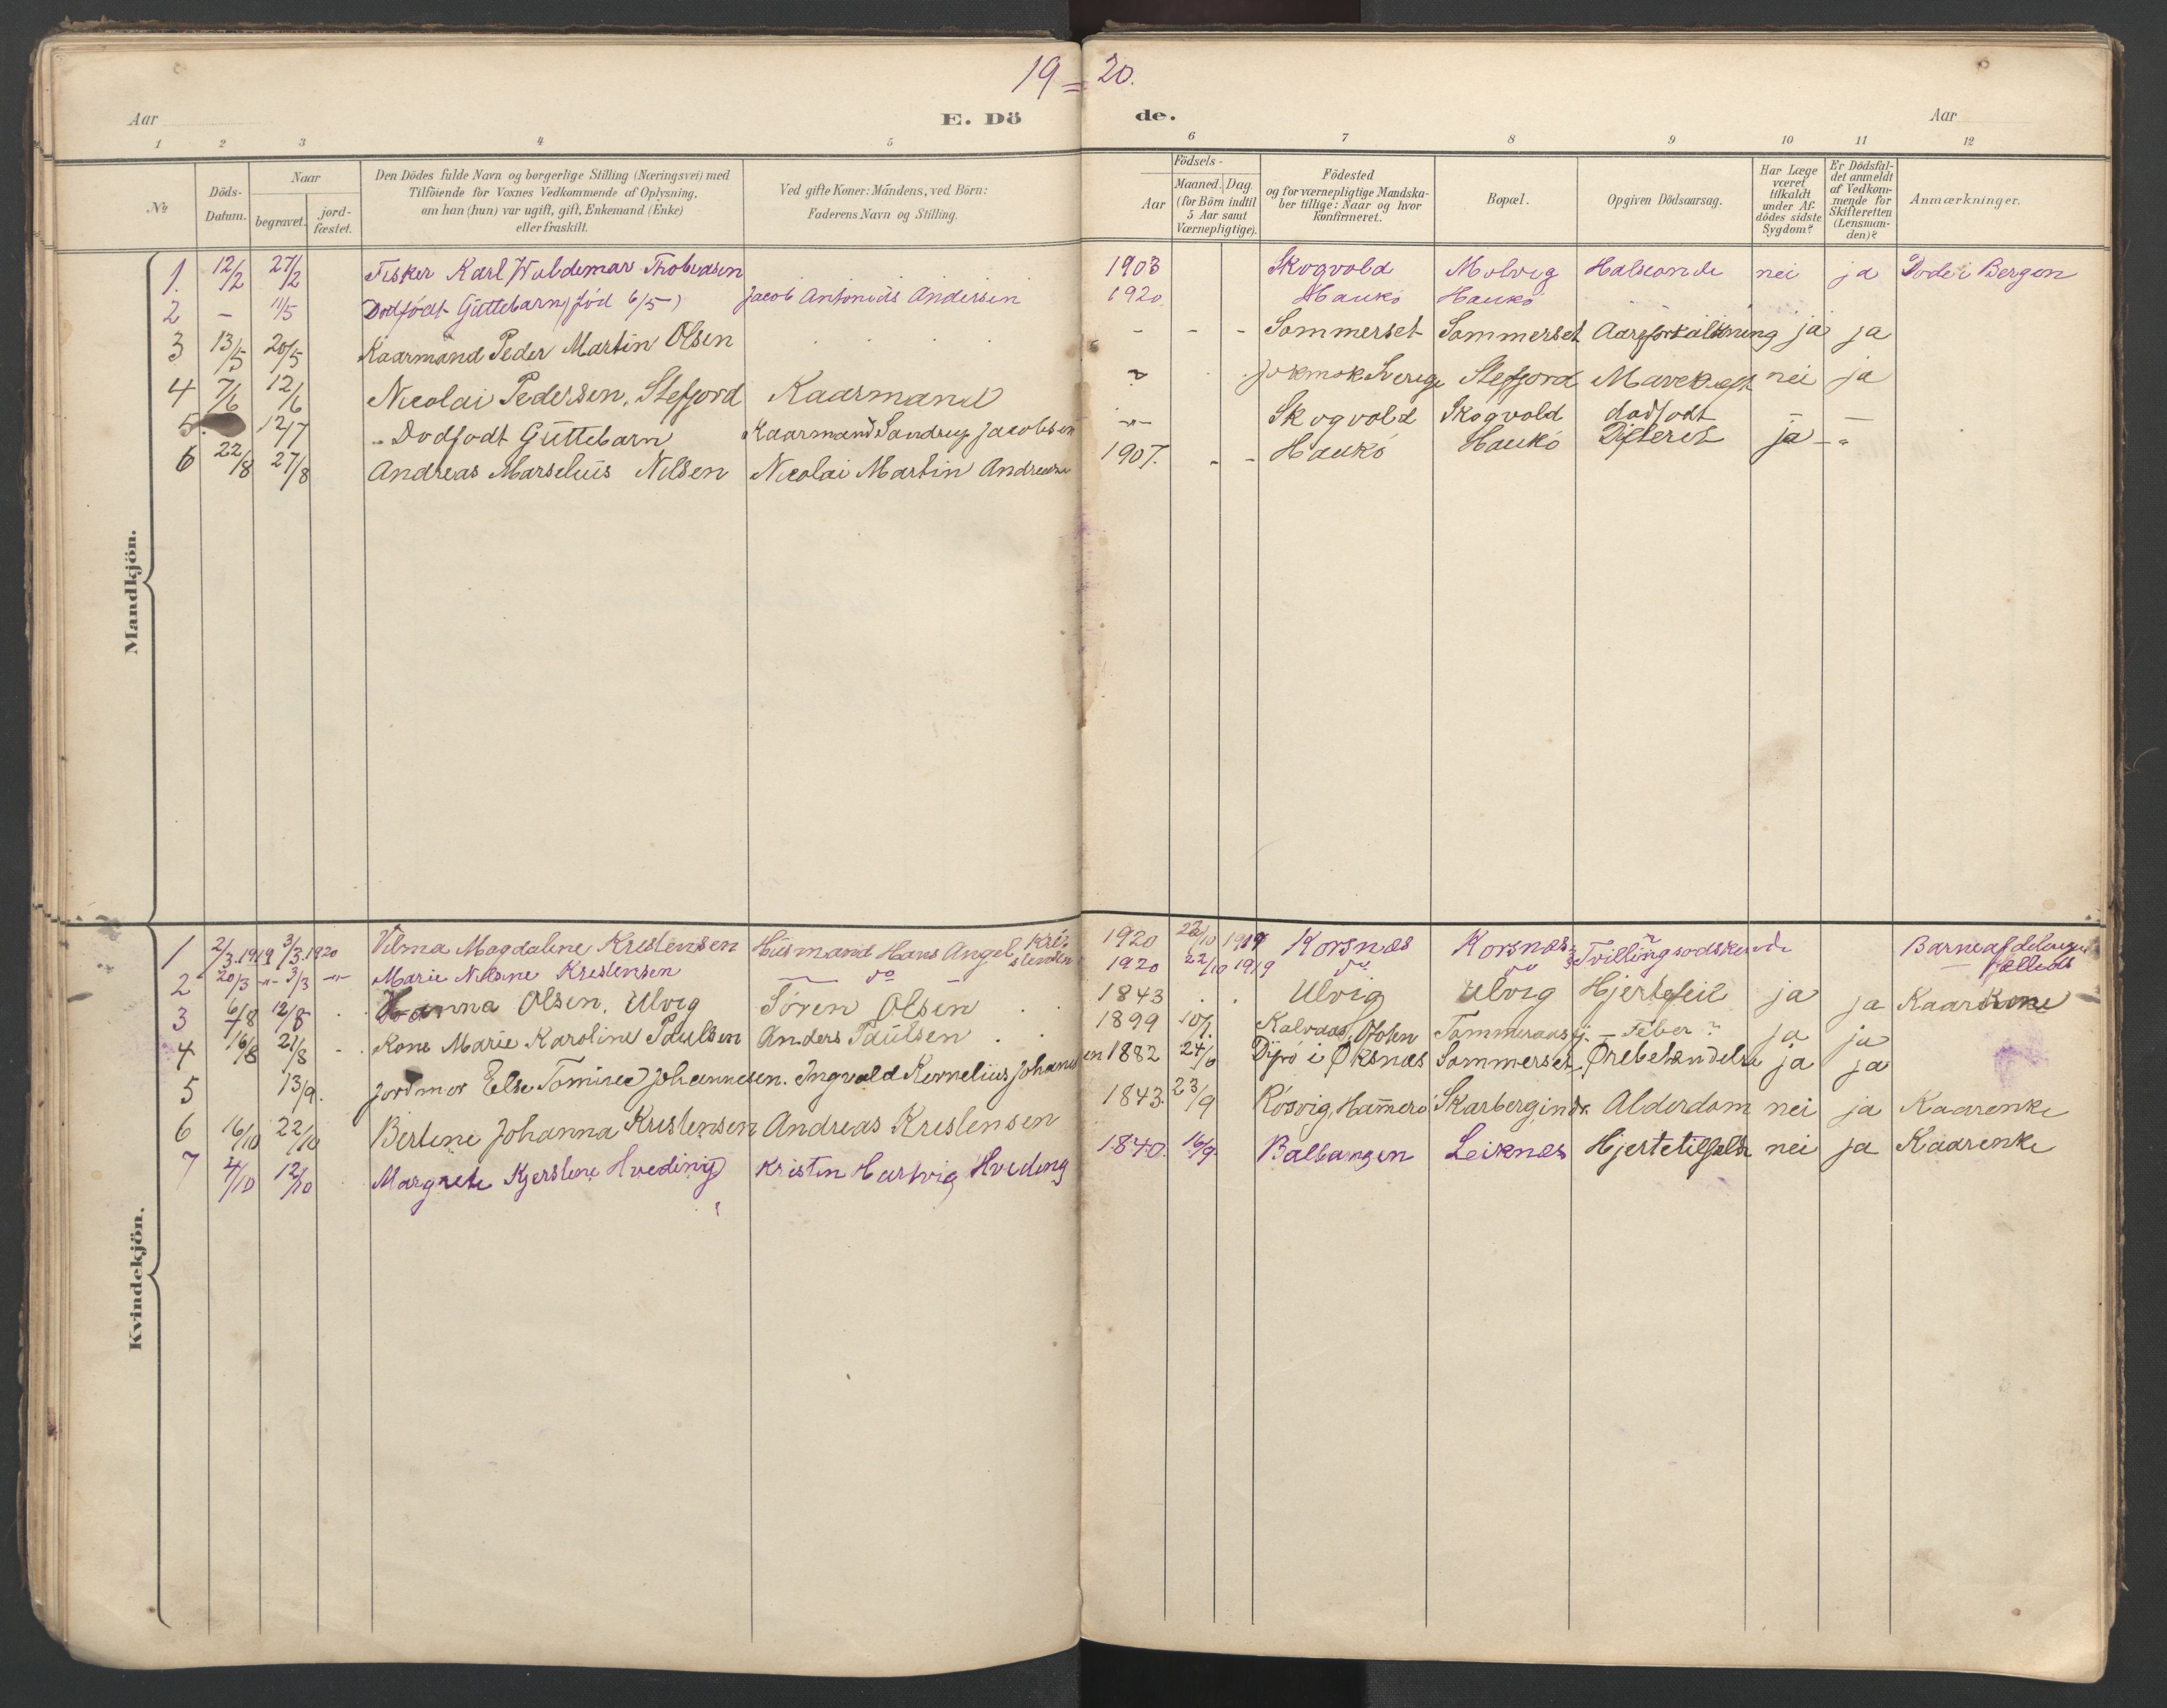 19 = 20.
Aar E. Dö de. Aar
1 2 3 4 5 6 7 8 9 10 11 12
No
Döds-
Datum.
Naar
begravet.
jord-
fæstet.
Den Dödes fulde Navn og borgerlige Stilling (Næringsvei) med
Tilföiende for Voxnes Vedkommende af Oplysning,
om han (hun) var ugift, gift, Enkemand (Enke)
eller fraskilt.
Ved gifte Koner: Mandens, ved Börn:
Faderens Navn og Stilling.
Födsels-
Aar
Maaned. Dag.
(for Börn indtil
5 Aar samt
Værnepligtige).
Födested
og for værnepligtige Mandska-
ber tillige: Naar og hvor
Konfirmeret.
Bopæl.
Opgiven Dödsaarsag.
Har Læge
været
tilkaldt
under Af-
dödes sidste
Sygdom?
Er Dödsfal-
det anmeldt
af Vedkom-
mende for
Skifteretten
(Lensman-
den)?
Anmærkninger.
Mandkjön.
1. 12/2 27/2 Fisker Karl Woldemar Thobiasen 1903 Skogvold Molvig nei ja Döde i Bergen
2 - 11/5 Dodfødt Guttebarn (fød 6/5-) Jacob Antonius Andersen 1920 Haukö Haukö
3 13/5 20/5 Kaarmand Peder Martin Olsen - - - Sommerset Sommerset Aareforkalkning ja ja
4 7/6 12/6 Nicolai Pedersen, Stefjord Kaarmand ? Jokmok Sverige Stefjord nei ja
5. 12/7 Dodfodt Guttebarn Kaarmand Sandrup Jacobsen -"- Skogvold Skogvold dodfodt - -
6 22/8 27/8 Andreas Marselius Nilsen Nicolai Martin 1907. - - Haukö Haukö Difterit ja - "
Kvindekjön.
1 2/3.1919 3/3.1920 Vilma Magdaline Kristensen Husmand Hans Angel Kristensen 1920 22/10 1919 Korsnæs Korsnæs
2 20/3 -"- 3/3 -"- Marie Kristensen - do - 1920 22/10 1919 do do
3 6/8 12/8 Hanna Olsen, Ulvig Sören Olsen 1843 Ulvig Ulvig Hjertefeil ja ja Kaarkone
4 16/8 21/8 Kone Marie Karoline Paulsen Anders Paulsen 1899 10/7. - Feber ? ja ja
5 13/9. Jordmor Else Johannesen. Ingvald Kornelius Johannesen 1882 i Öksnæs Sommerset ja ja
6 16/10 22/10 Bertine Johanna Kristensen Andreas Kristensen 1843. 23/9 Rösvig, Hamerö Skarberg indr. Alderdom nei ja Kaarenke
7 4/10 12/10 Margrete Kjerstine Hveding Kristen Hartvig Hveding 1840. 16/9 Ballangen Leiknæs nei ja Kaarenke